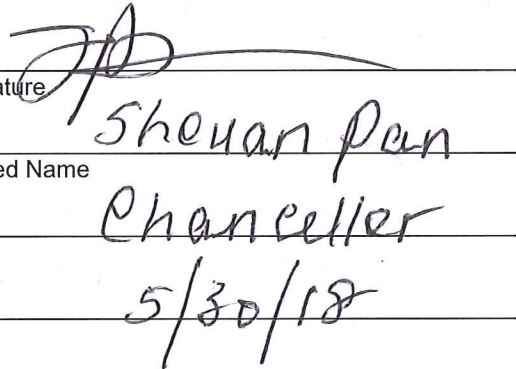 ature
Sheuan Pan
ed Name
Chancellor
5/30/18